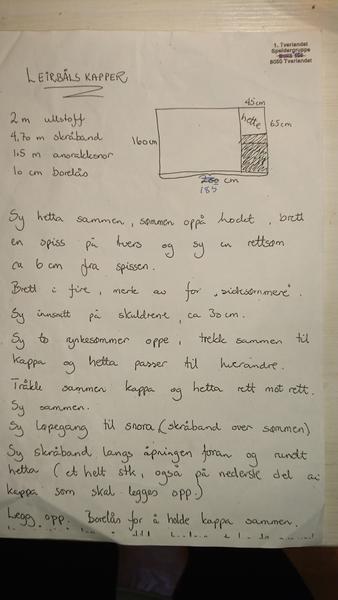 1. Tverlandet
Speidergruppe
8050 Tverlandet
LEIRBÅLSKAPPER
2 m ullstoff
4,70 m skråband
1,5 m anorakksnor
10 cm borelås
45 cm
hette
65 cm
160 cm
cm
185
Sy hetta sammen, sømmen oppå hodet, brett
en spiss på tvers og sy en rettsøm
ca 6 cm fra spissen.
Brett i fire, merk av for "sidesømmene".
Sy innsnitt på skuldrene, ca 30 cm.
Sy to rynkesømmer oppe, trekk sammen til
kappa og hetta passer til hverandre.
Tråkle sammen kappa og hetta rett mot rett.
Sy sammen.
Sy løpegang til snora (skråband over sømmen)
Sy skråband langs åpningen foran og rundt
hetta (et helt stk, også på nederste del av
kappa som skal legges opp.)
Legg opp. Borelås for å holde kappa sammen.